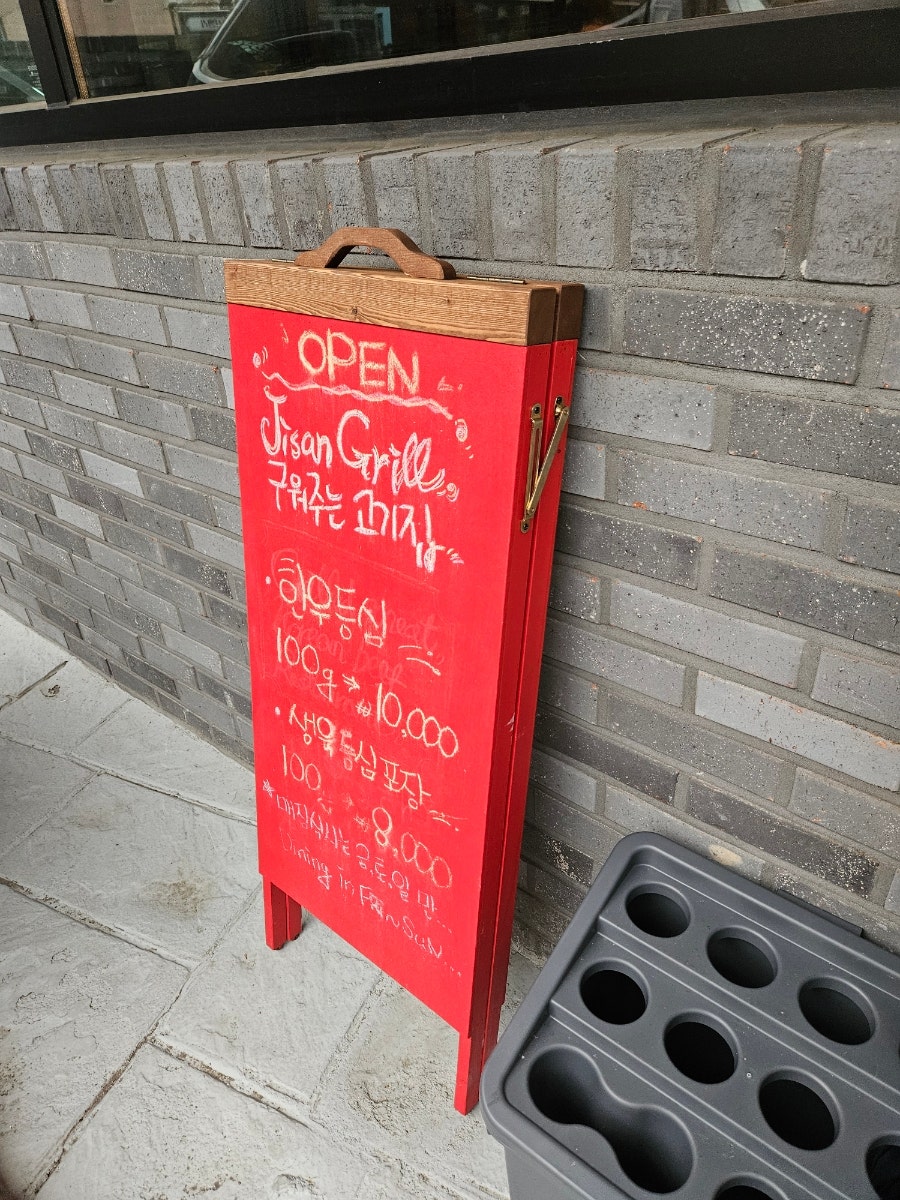 OPEN
Jisan Grill
구워주는 고기집
· 한우등심
100g → ₩10,000
· 생목등심포장
100 → ₩8,000
* 매장식사는 금,토,일만...
Dining in Fri~Sun...